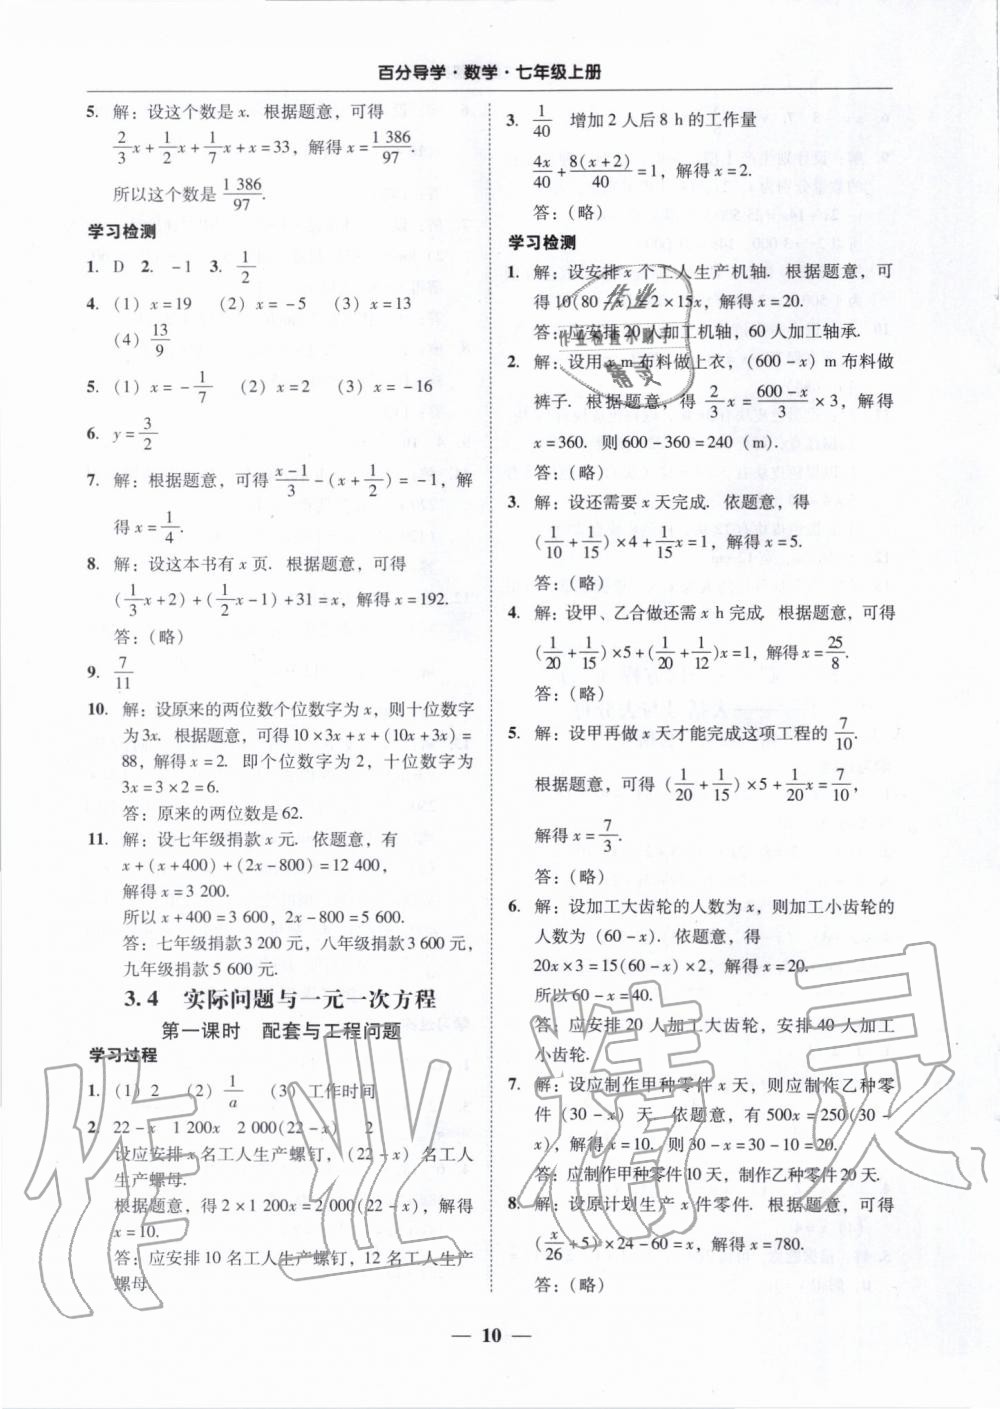 百分导学·数学·七年级上册
5. 解：设这个数是 x. 根据题意，可得
2/3 x + 1/2 x + 1/7 x + x = 33，解得 x = 1 386/97.
所以这个数是 1 386/97.
学习检测
1. D 2. －1 3. 1/2
4. （1）x = 19 （2）x = －5 （3）x = 13
（4）13/9
5. （1）x = － 1/7 （2）x = 2 （3）x = －16
6. y = 3/2
7. 解：根据题意，可得 (x－1)/3 －(x + 1/2) = －1，解
得 x = 1/4.
8. 解：设这本书有 x 页. 根据题意，可得
(1/3 x + 2) + (1/2 x － 1) + 31 = x，解得 x = 192.
答：（略）
9. 7/11
10. 解：设原来的两位数个位数字为 x，则十位数字
为 3x. 根据题意，可得 10 × 3x + x + (10x + 3x) =
88，解得 x = 2. 即个位数字为 2，十位数字为
3x = 3 × 2 = 6.
答：原来的两位数是 62.
11. 解：设七年级捐款 x 元. 依题意，有
x + (x + 400) + (2x － 800) = 12 400，
解得 x = 3 200.
所以 x + 400 = 3 600，2x － 800 = 5 600.
答：七年级捐款 3 200 元，八年级捐款 3 600 元，
九年级捐款 5 600 元.
3.4 实际问题与一元一次方程
第一课时 配套与工程问题
学习过程
1. （1）2 （2）1/a （3）工作时间
2. 22－x 1 200x 2 000(22－x) 2
设应安排 x 名工人生产螺钉，(22－x) 名工人
生产螺母.
根据题意，得 2 × 1 200x = 2 000(22－x)，解得
x = 10.
答：应安排 10 名工人生产螺钉，12 名工人生产
螺母.
3. 1/40 增加 2 人后 8 h 的工作量
4x/40 + 8(x+2)/40 = 1，解得 x = 2.
答：（略）
学习检测
1. 解：设安排 x 个工人生产机轴. 根据题意，可
得 10(80－x) = 2 × 15x，解得 x = 20.
答：应安排 20 人加工机轴，60 人加工轴承.
2. 解：设用 x m 布料做上衣，(600－x) m 布料做
裤子. 根据题意，得 2/3 x = (600－x)/3 × 3，解得
x = 360. 则 600－360 = 240（m）.
答：（略）
3. 解：设还需要 x 天完成. 依题意，得
(1/10 + 1/15) × 4 + 1/15 x = 1，解得 x = 5.
答：（略）
4. 解：设甲、乙合做还需 x h 完成. 根据题意，可得
(1/20 + 1/15) × 5 + (1/20 + 1/12)x = 1，解得 x = 25/8.
答：（略）
5. 解：设甲再做 x 天才能完成这项工程的 7/10.
根据题意，可得 (1/20 + 1/15) × 5 + 1/20 x = 7/10，
解得 x = 7/3.
答：（略）
6. 解：设加工大齿轮的人数为 x，则加工小齿轮的
人数为 (60－x). 依题意，得
20x × 3 = 15(60－x) × 2，解得 x = 20.
所以 60－x = 40.
答：应安排 20 人加工大齿轮，安排 40 人加工
小齿轮.
7. 解：设应制作甲种零件 x 天，则应制作乙种零
件 (30－x) 天. 依题意，有 500x = 250(30－
x)，解得 x = 10. 则 30－x = 30－10 = 20.
答：应制作甲种零件 10 天，制作乙种零件 20 天.
8. 解：设原计划生产 x 件零件. 根据题意，可得
(x/26 + 5) × 24－60 = x，解得 x = 780.
答：（略）
作业
作业检查小助手
精灵
作业精灵
— 10 —